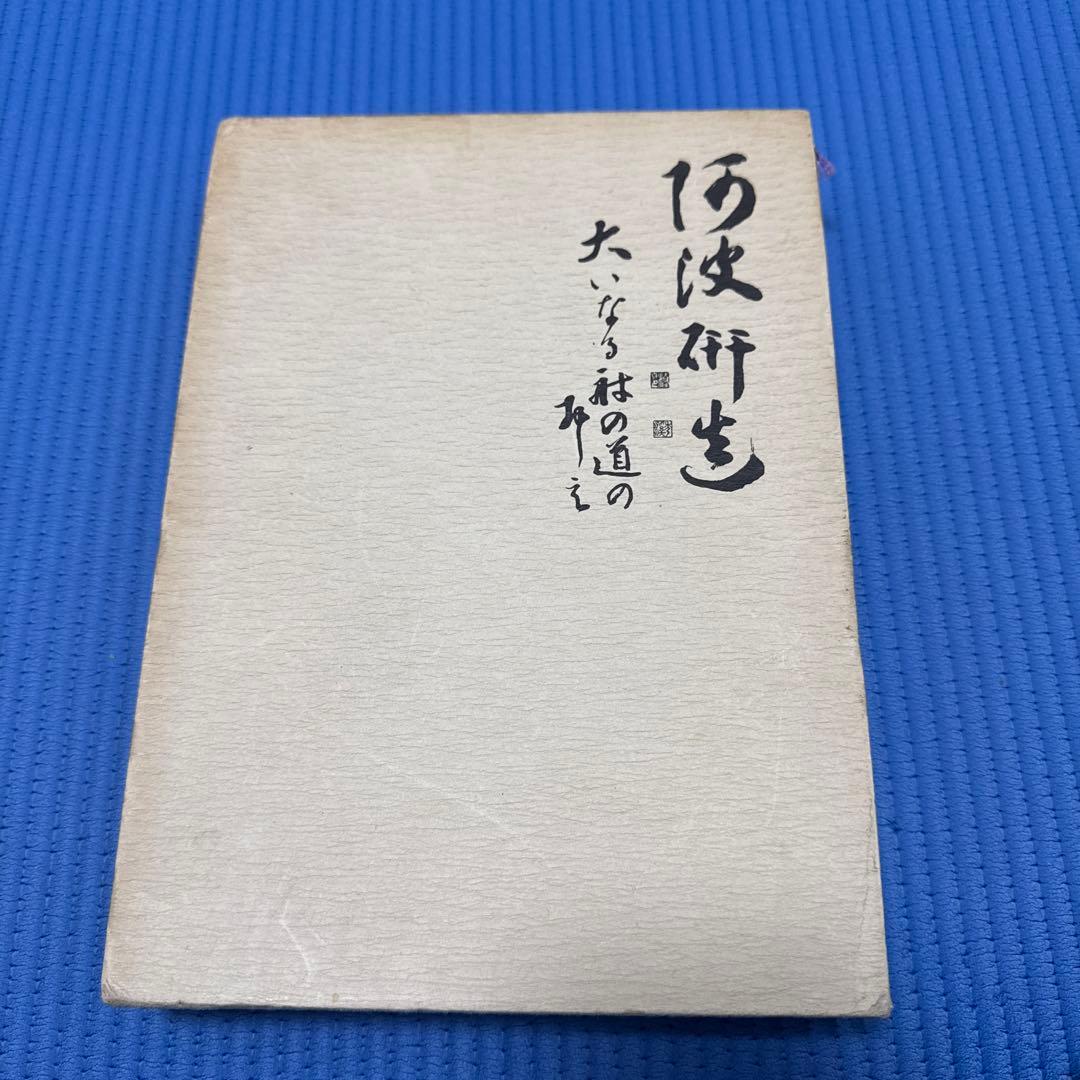 阿波研造
大いなる射の道の
教え